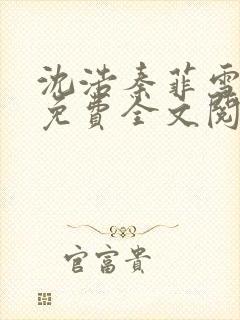 沈浩秦菲雪
免费全文阅
官富贵